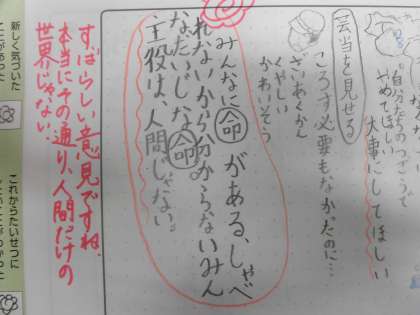 自分たちのつごうで
やめてほしい
大事にしてほしい
芸当を見せる
ころす必要もなかったのに…
ざいあくかん
くやしい
かわいそう
みんなに命がある、しゃべ
れないから分からないみん
なおなじな命。
主役は、人間じゃない。
すばらしい意見ですね。
本当にその通り、人間だけの
世界じゃない
新しく気づいた
ことがあった
これからたいせつに